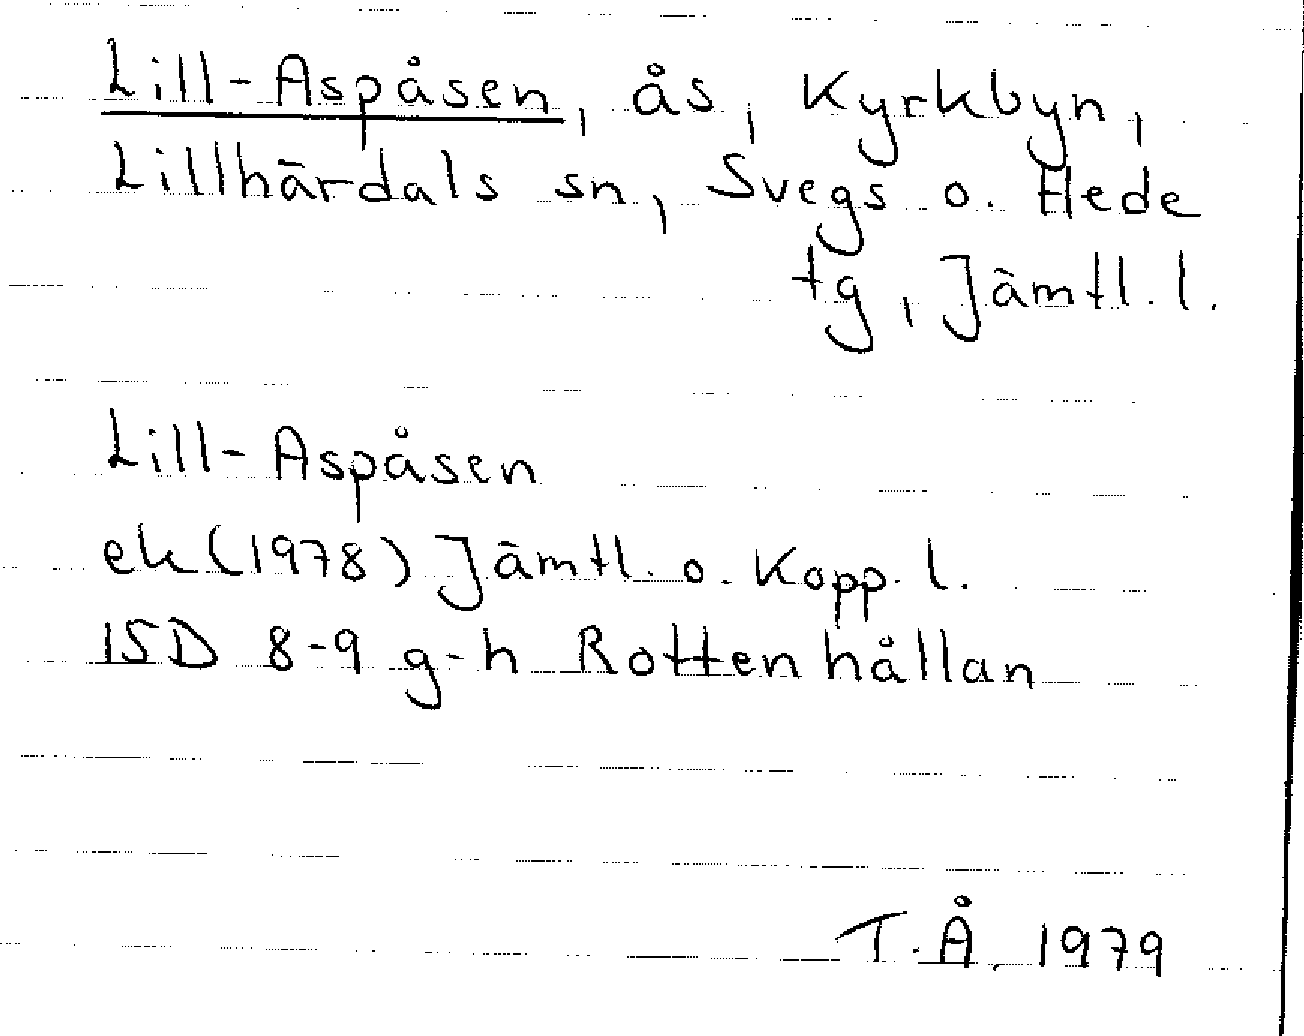 Lill-Aspåsen, ås, Kyrkbyn,
Lillhärdals sn, Svegs o. Hede
tg, Jämtl. l.
Lill-Aspåsen
ek (1978) Jämtl. o. Kopp. l.
15D 8-9 g-h Rottenhållan
T.Å. 1979